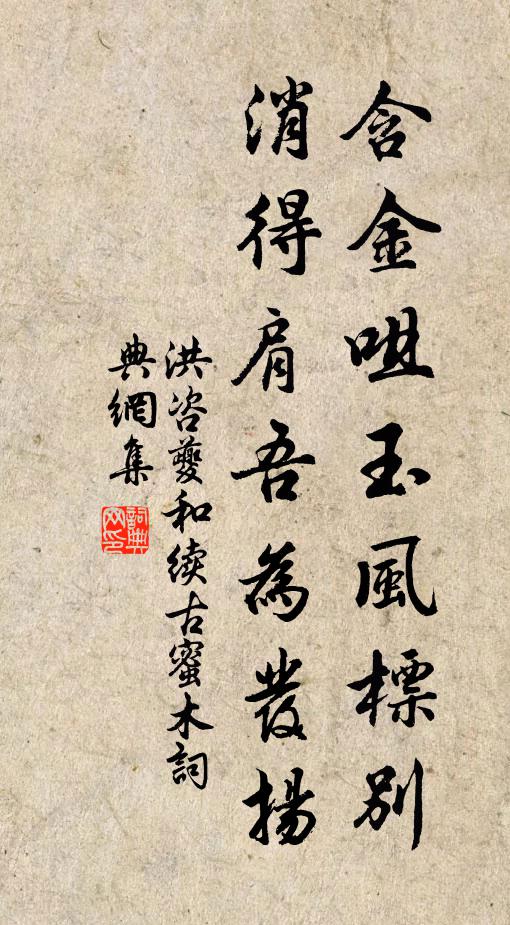 含金咀玉風標別
消得肩吾為發揚
洪咨夔和续古蜜木詞
典網集
詞典網印